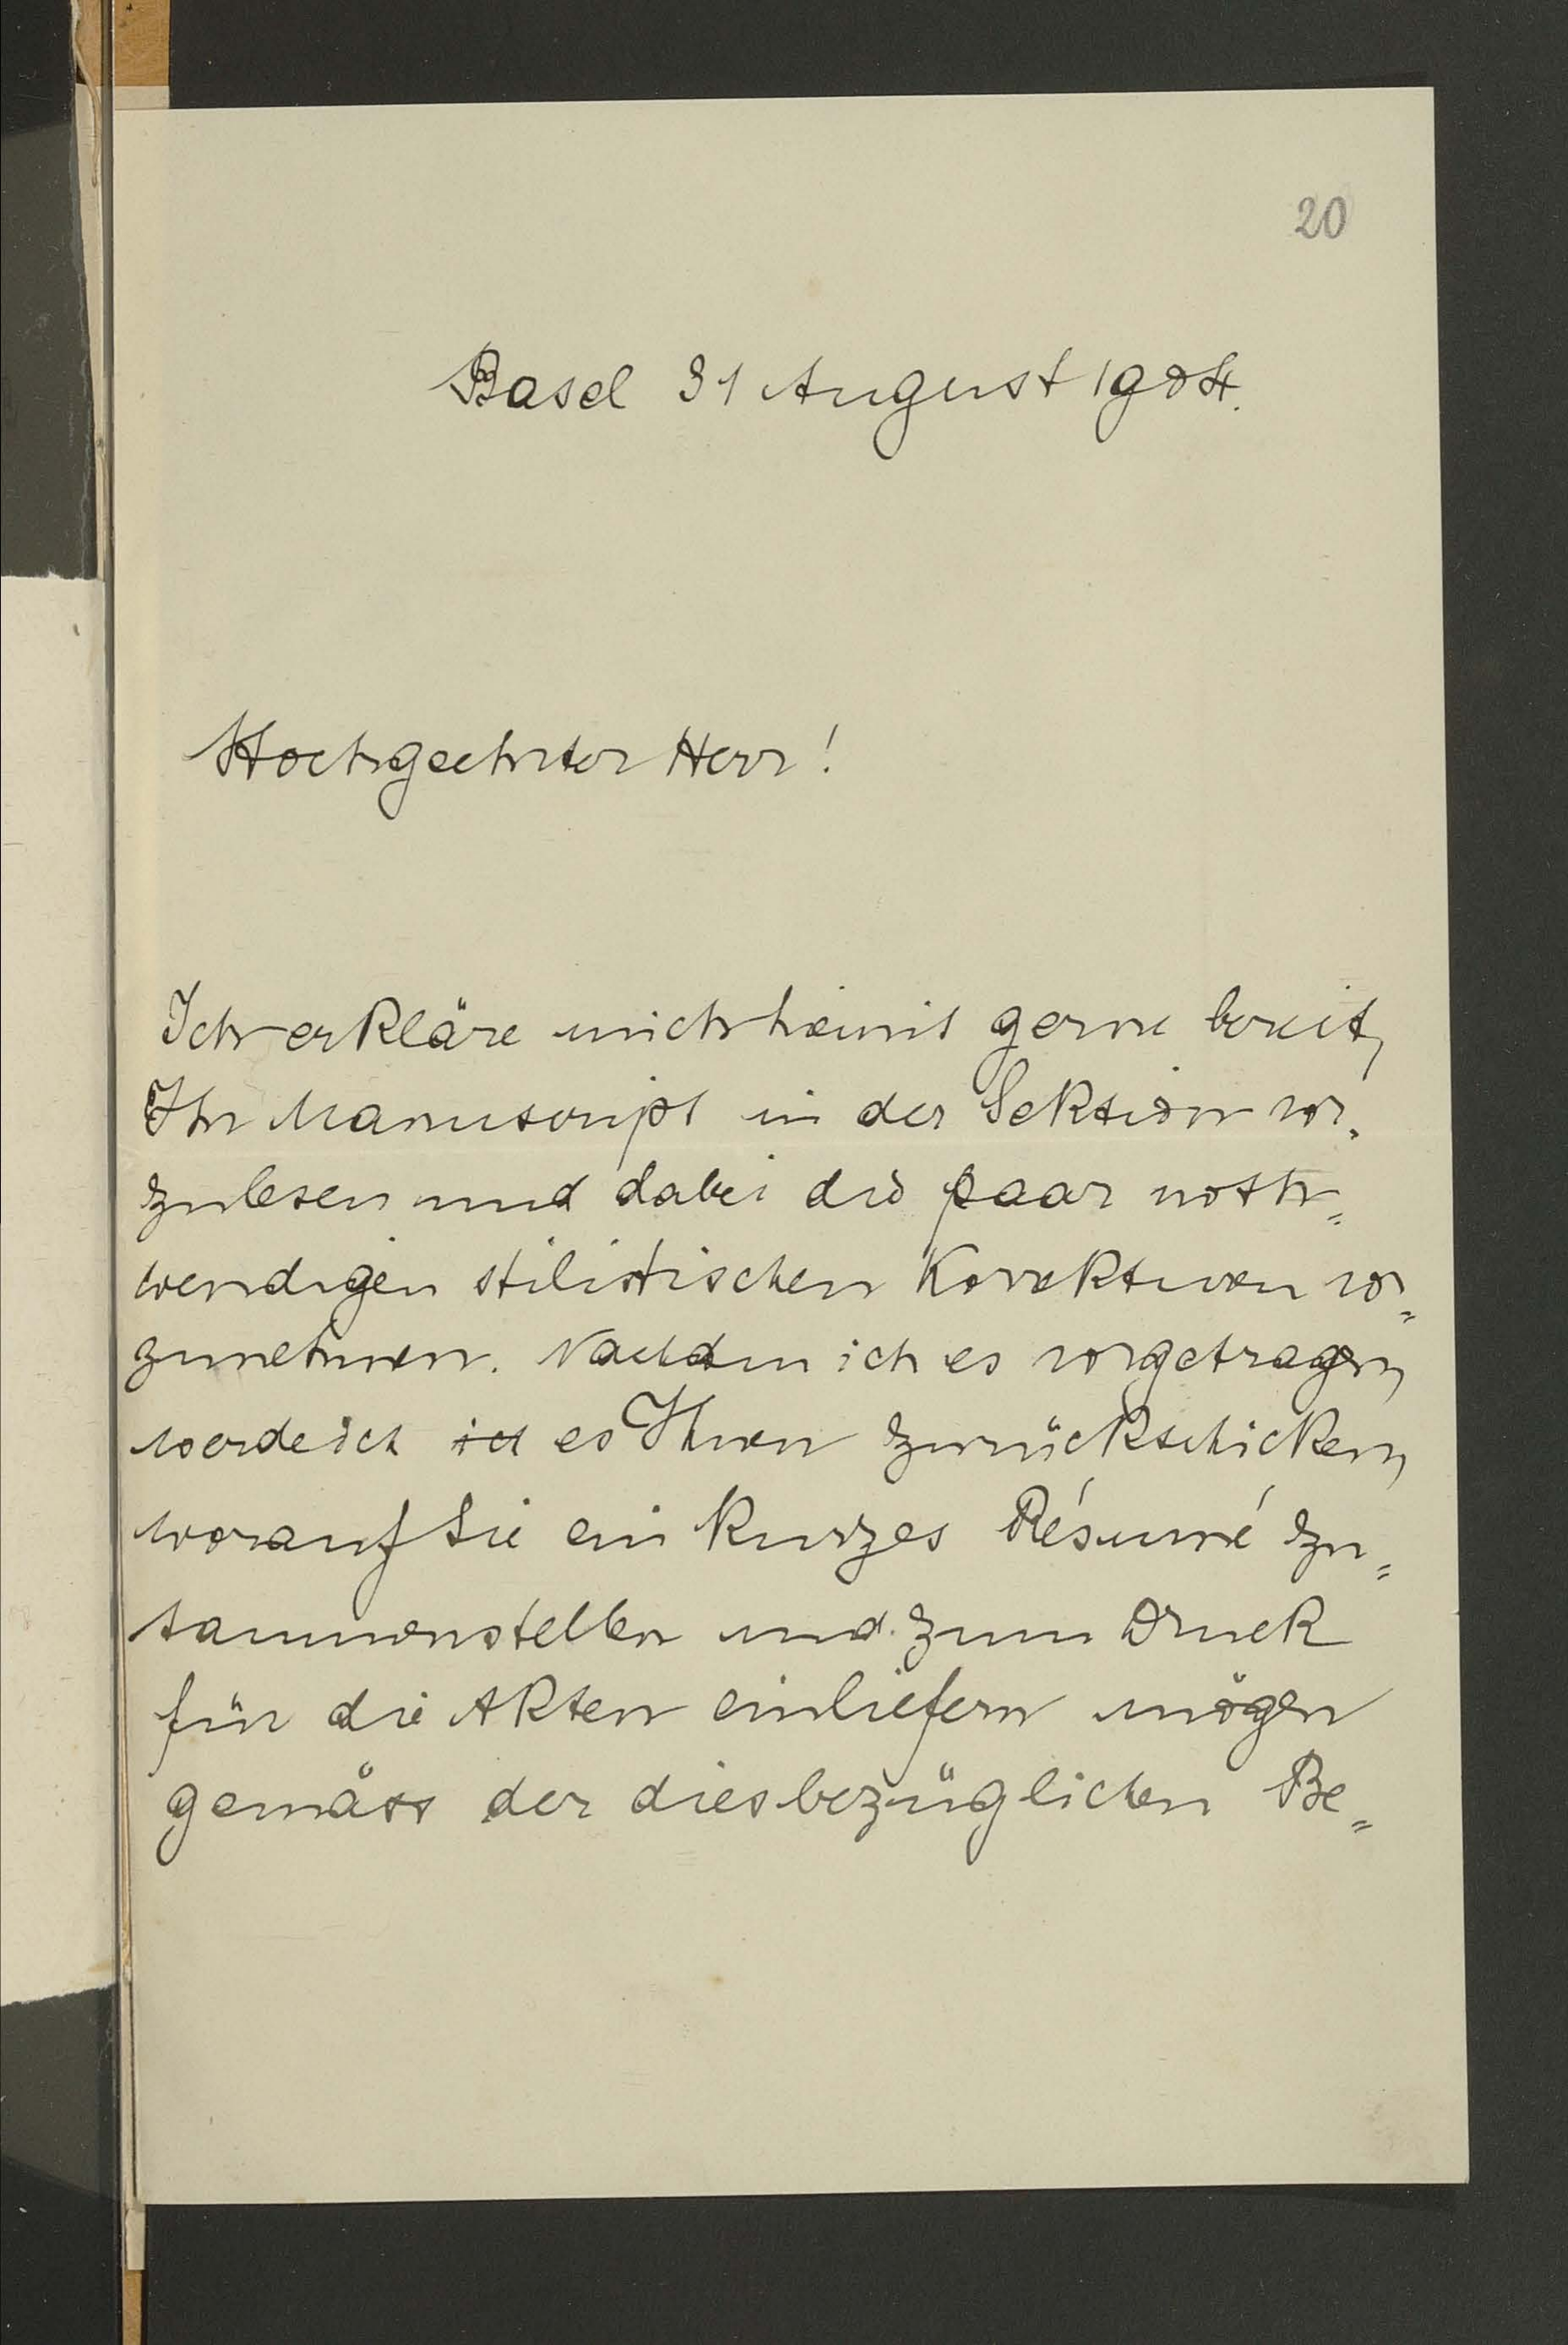 20
Basel 31 August 1904.
Hochgeehrter Herr!
Ich erkläre mich hiemit gerne bereit,
Ihr Manuscript in der Sektion vor=
zulesen und dabei die paar noth=
wendigen stilistischen Korrekturen vor=
zunehmen. Nachdem ich es vorgetragen,
werde ich ich es Ihnen zurückschicken,
worauf Sie ein kurzes Résumé zu=
sammenstellen und zum Druck
für die Akten einliefern mögen
gemäss der diesbezüglichen Be=